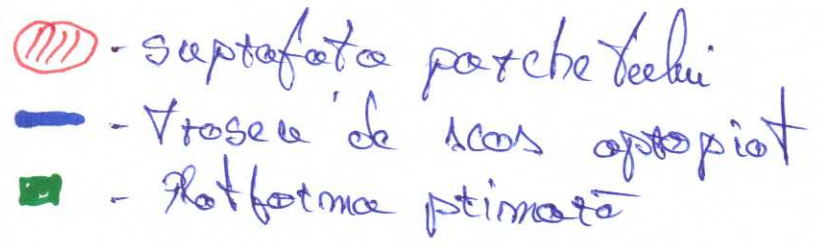 - suprafata parchetului
- Traseu de scos apropiat
- Platforma primară